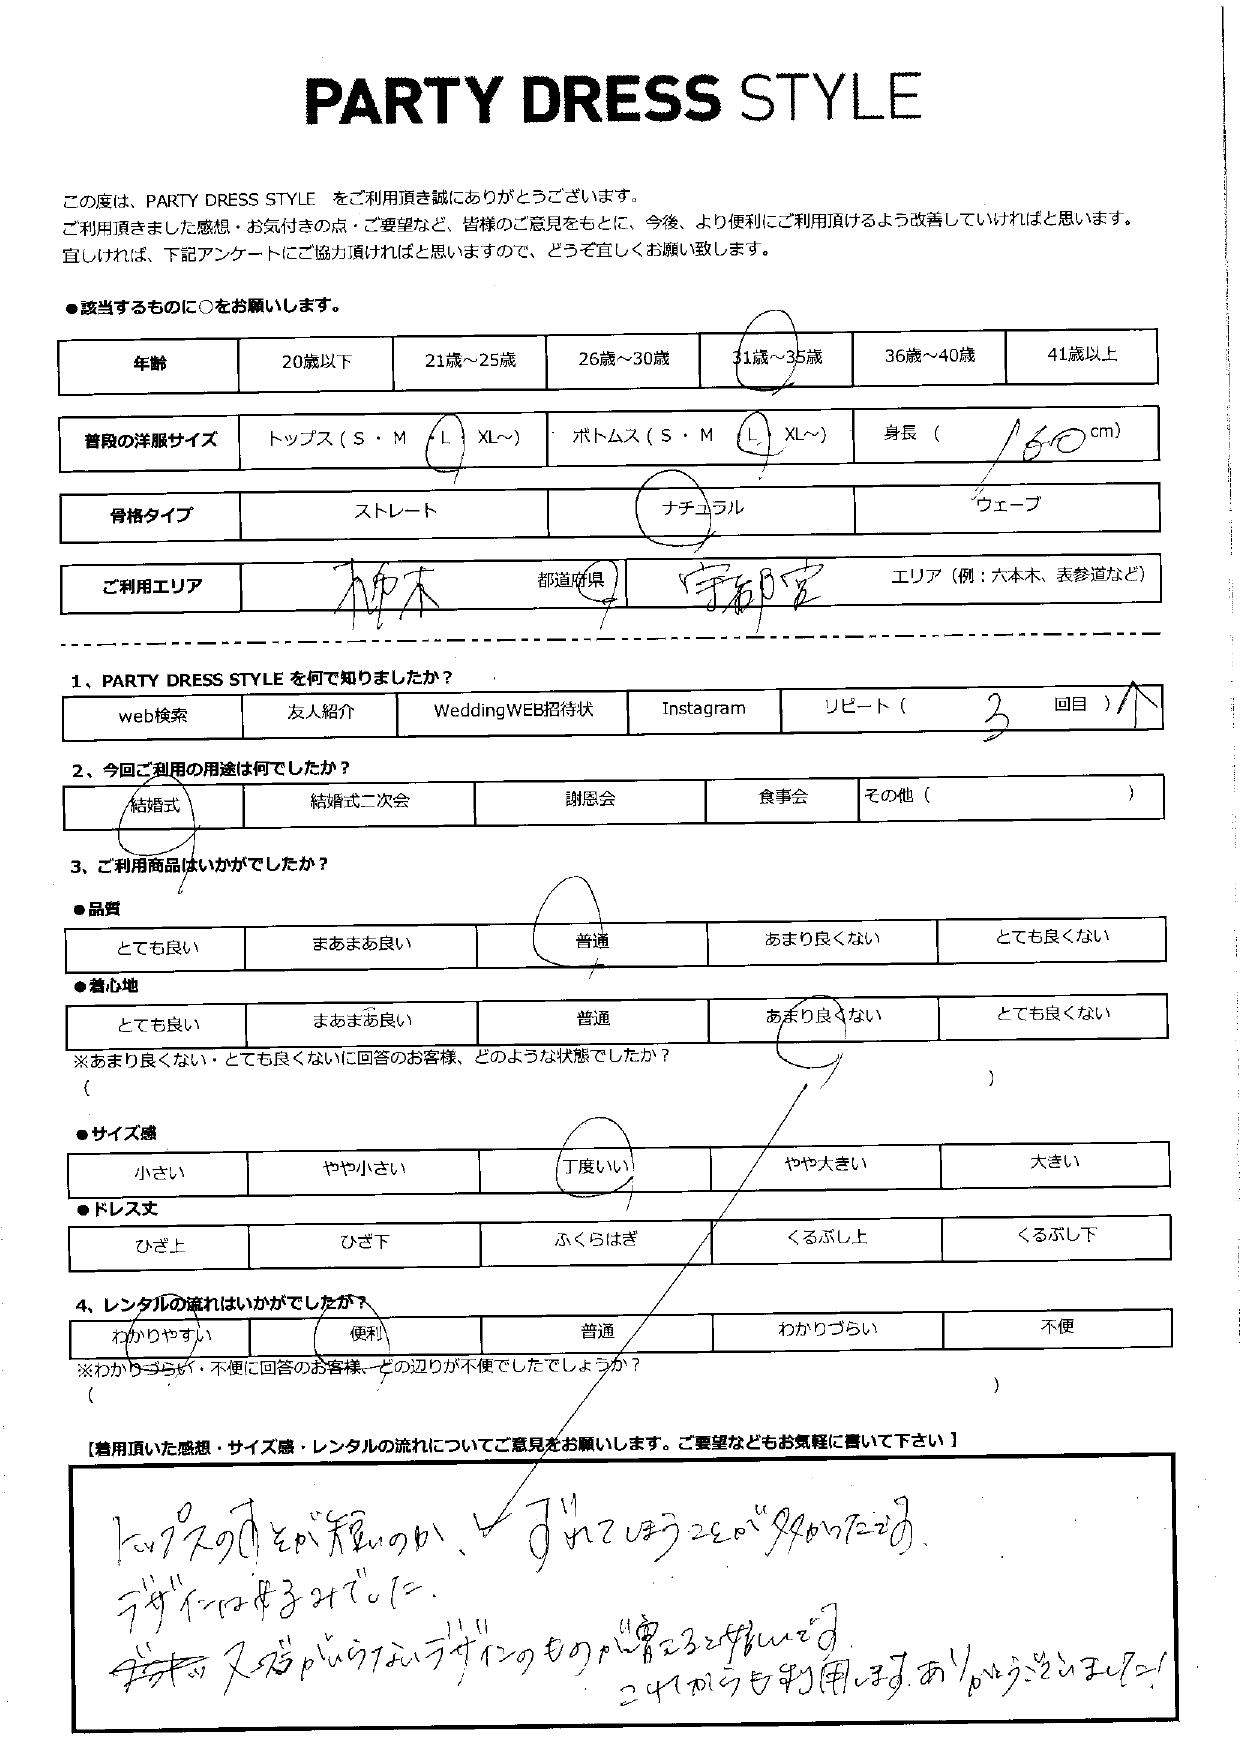 PARTY DRESS STYLE
この度は、PARTY DRESS STYLE をご利用頂き誠にありがとうございます。
ご利用頂きました感想・お気付きの点・ご要望など、皆様のご意見をもとに、今後、より便利にご利用頂けるよう改善していければと思います。
宜しければ、下記アンケートにご協力頂ければと思いますので、どうぞ宜しくお願い致します。
●該当するものに○をお願いします。
年齢 20歳以下 21歳～25歳 26歳～30歳 31歳～35歳 36歳～40歳 41歳以上
普段の洋服サイズ トップス（ S ・ M ・ L ・ XL～） ボトムス（ S ・ M ・ L ・ XL～） 身長（ 160 cm）
骨格タイプ ストレート ナチュラル ウェーブ
ご利用エリア 栃木 都道府県 宇都宮 エリア（例：六本木、表参道など）
1、PARTY DRESS STYLE を何で知りましたか？
web検索 友人紹介 WeddingWEB招待状 Instagram リピート（ 3 回目 ）↑
2、今回ご利用の用途は何でしたか？
結婚式 結婚式二次会 謝恩会 食事会 その他（ ）
3、ご利用商品はいかがでしたか？
●品質
とても良い まあまあ良い 普通 あまり良くない とても良くない
●着心地
とても良い まあまあ良い 普通 あまり良くない とても良くない
※あまり良くない・とても良くないに回答のお客様、どのような状態でしたか？
（ ）
●サイズ感
小さい やや小さい 丁度いい やや大きい 大きい
●ドレス丈
ひざ上 ひざ下 ふくらはぎ くるぶし上 くるぶし下
4、レンタルの流れはいかがでしたか？
わかりやすい 便利 普通 わかりづらい 不便
※わかりづらい・不便に回答のお客様、どの辺りが不便でしたでしょうか？
（ ）
【着用頂いた感想・サイズ感・レンタルの流れについてご意見をお願いします。ご要望などもお気軽に書いて下さい】
トップスのすそが短いのか、ずれてしまうことが多かったです。
デザインは好みでした。
ヌーブラがいらないデザインのものが増えると嬉しいです。
これからも利用します。ありがとうございました！